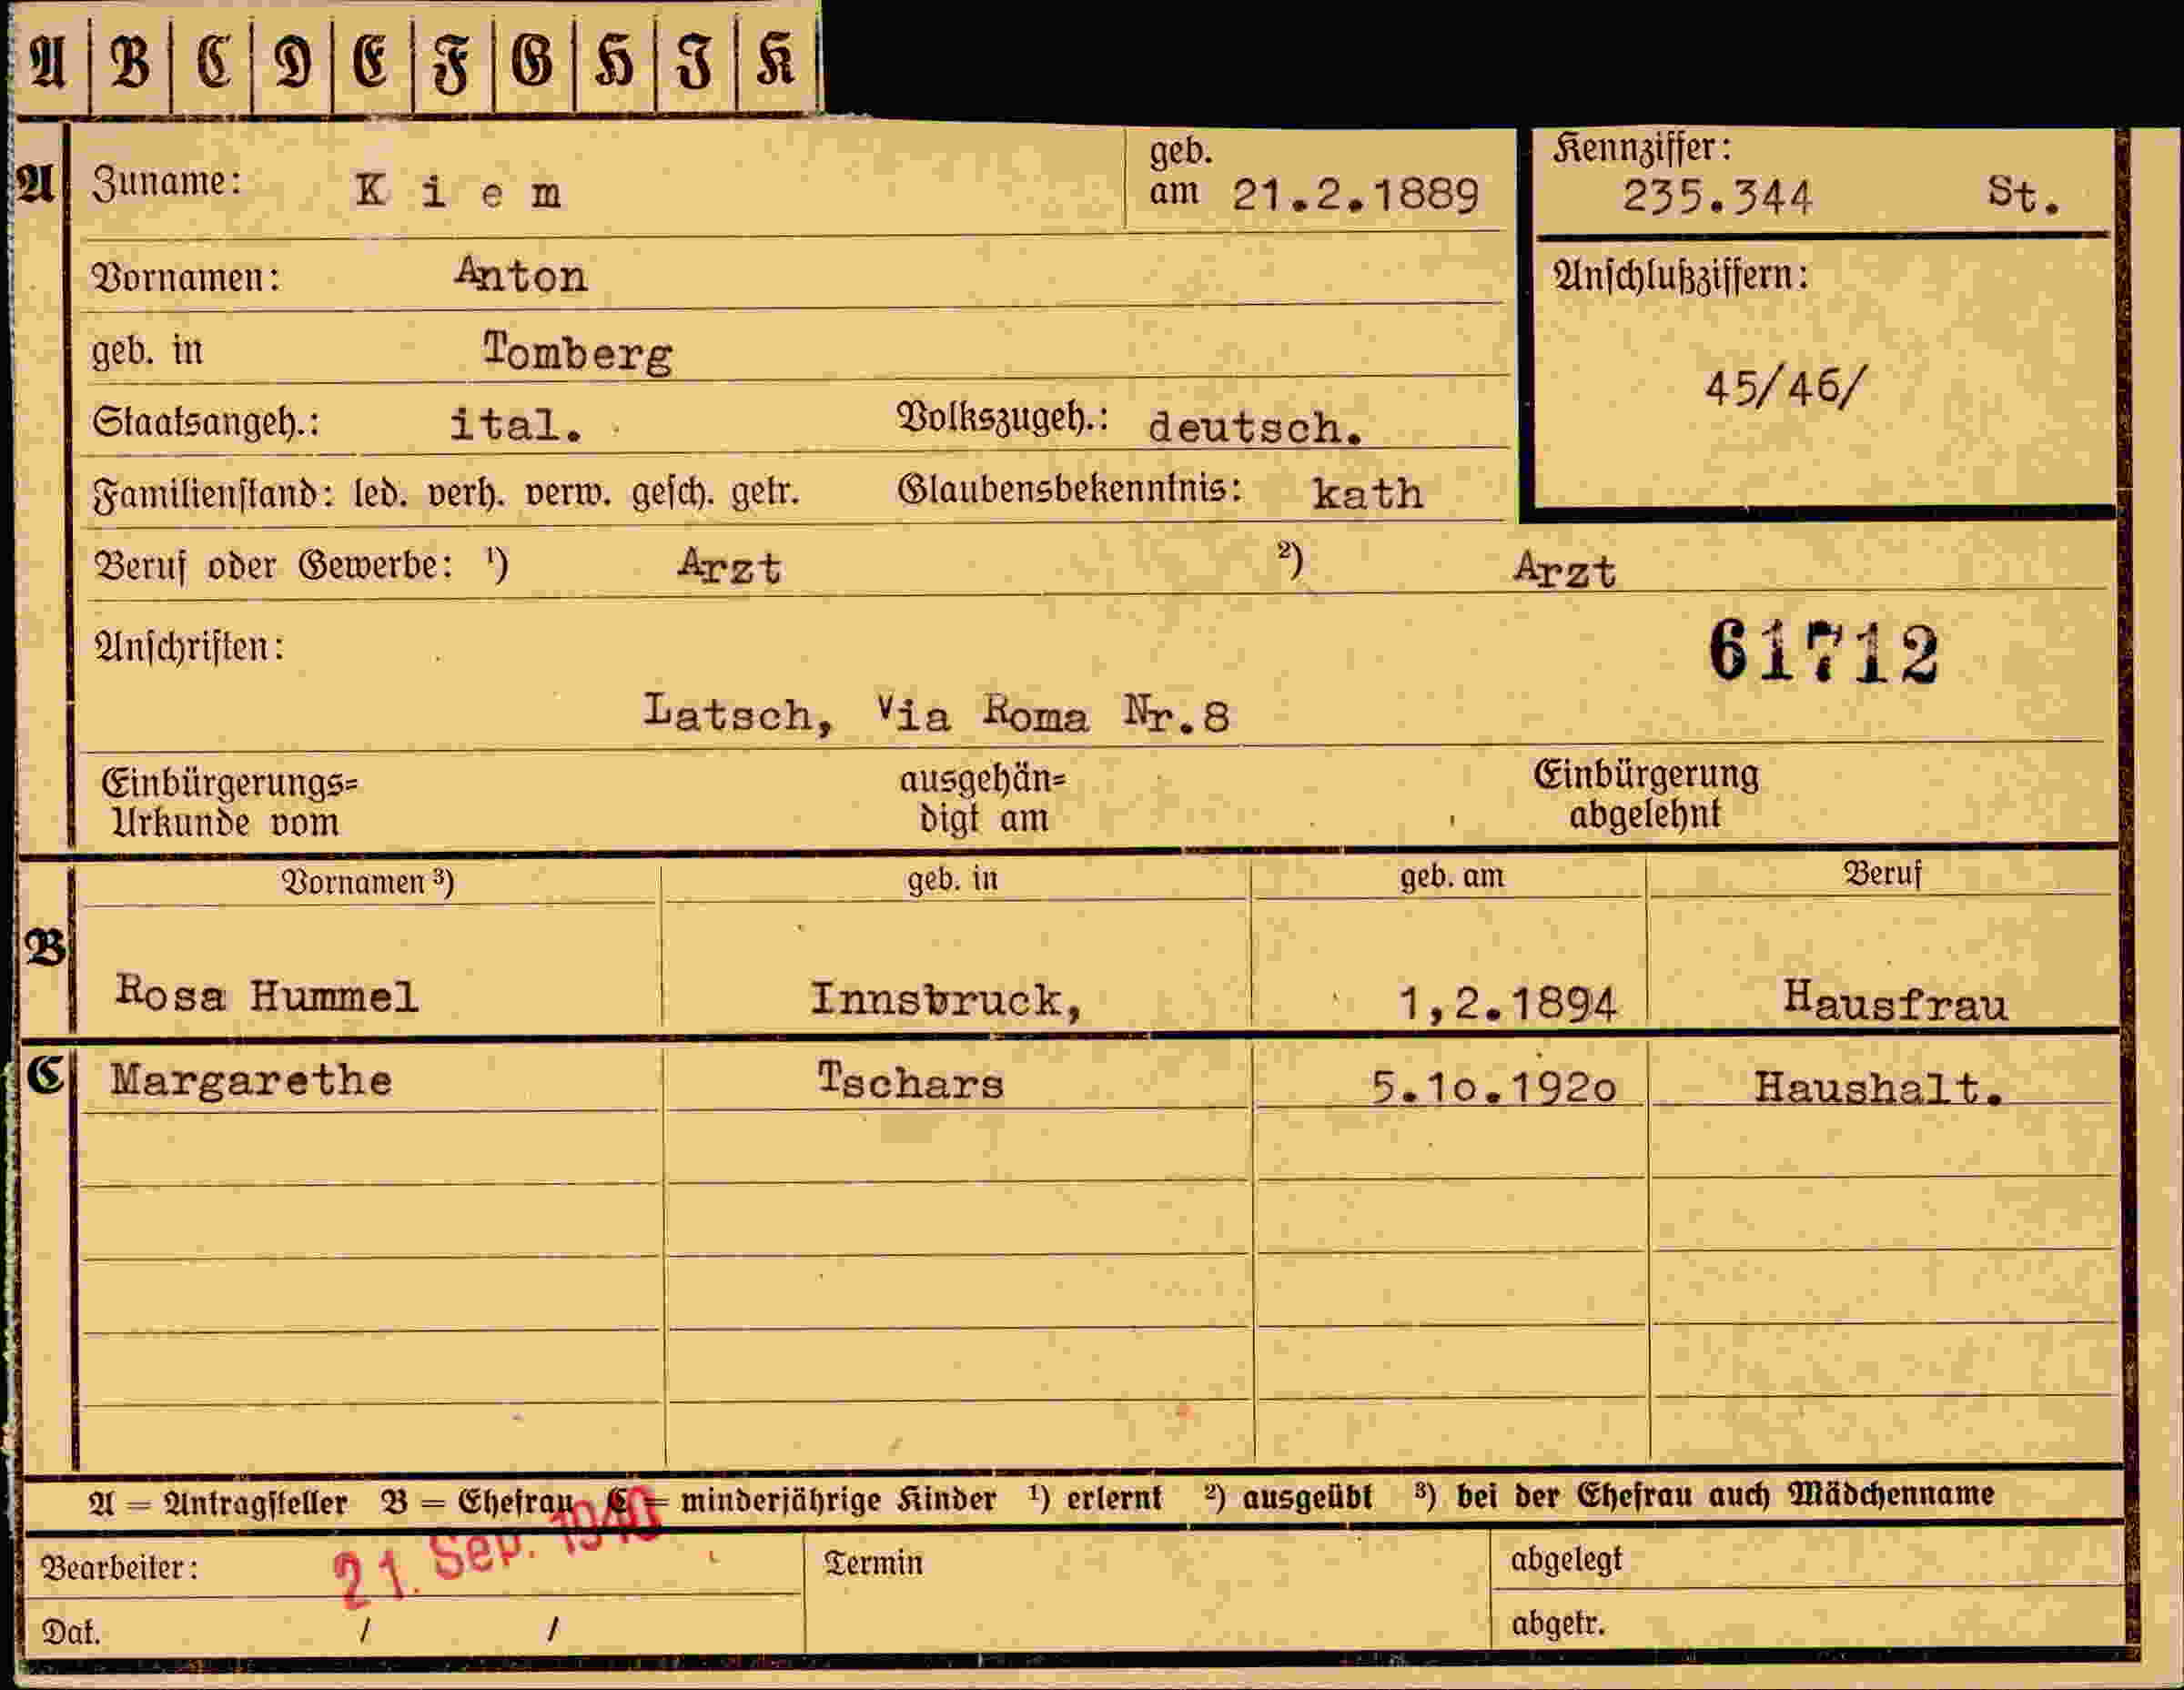 A B C D E F G H I K
A Zuname: Kiem geb. am 21.2.1889
Kennziffer: 235.344 St.
Vornamen: Anton
Anschlußziffern:
geb. in Tomberg
45/46/
Staatsangeh.: ital. Volkszugeh.: deutsch.
Familienstand: led. verh. verw. gesch. getr. Glaubensbekenntnis: kath
Beruf oder Gewerbe: ¹) Arzt ²) Arzt
Anschriften: 61712
Latsch, Via Roma Nr.8
Einbürgerungs=
Urkunde vom
ausgehän=
digt am
Einbürgerung
abgelehnt
Vornamen ³) geb. in geb. am Beruf
B Rosa Hummel Innsbruck, 1,2.1894 Hausfrau
C Margarethe Tschars 5.1o.192o Haushalt.
A = Antragsteller B = Ehefrau C = minderjährige Kinder ¹) erlernt ²) ausgeübt ³) bei der Ehefrau auch Mädchenname
Bearbeiter: 21. Sep. 1940 Termin abgelegt
Dat. / / abgetr.